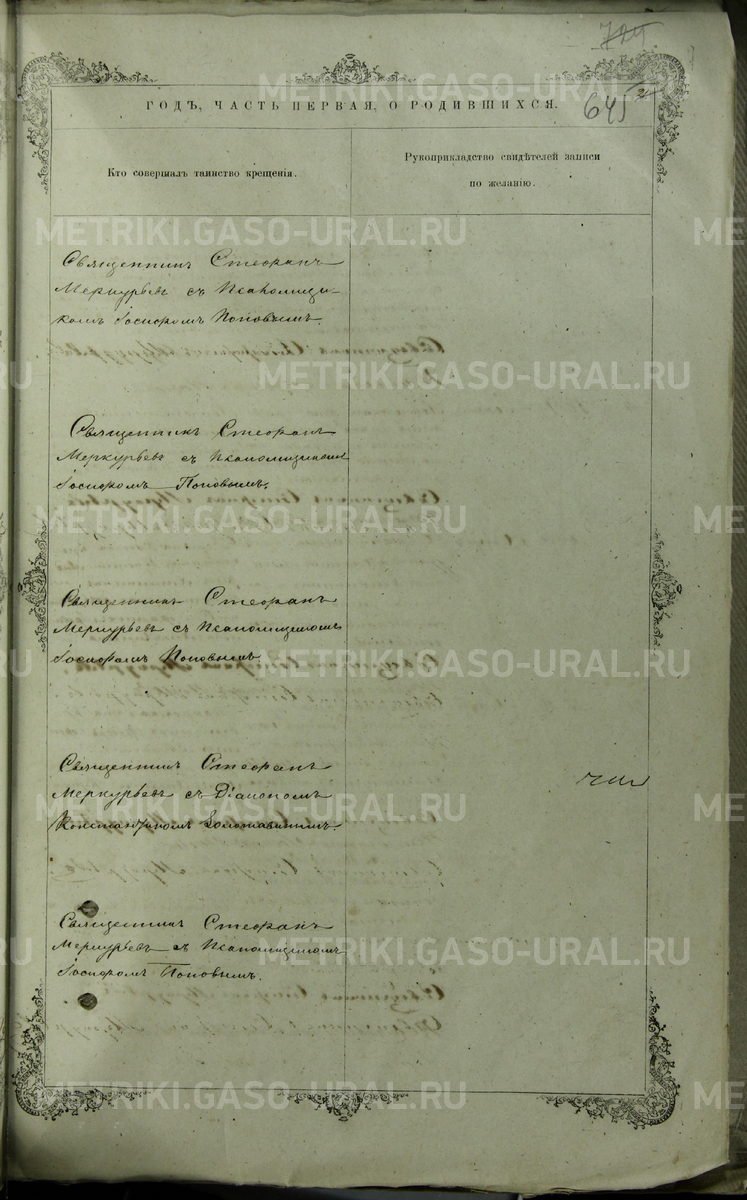 645
ГОДЪ, ЧАСТЬ ПЕРВАЯ, О РОДИВШИХСЯ.
Кто совершалъ таинство крещенія.
Рукоприкладство свидѣтелей записи
по желанію.
Священникъ Стефанъ
Меркурьевъ съ Псаломщи-
комъ Іосифомъ Поповымъ.
Священникъ Стефанъ
Меркурьевъ съ Псаломщикомъ
Іосифомъ Поповымъ.
Священникъ Стефанъ
Меркурьевъ съ Псаломщикомъ
Іосифомъ Поповымъ.
Священникъ Стефанъ
Меркурьевъ съ Діакономъ
Константиномъ Золотавинымъ.
Священникъ Стефанъ
Меркурьевъ съ Псаломщикомъ
Іосифомъ Поповымъ.
METRIKI.GASO-URAL.RU